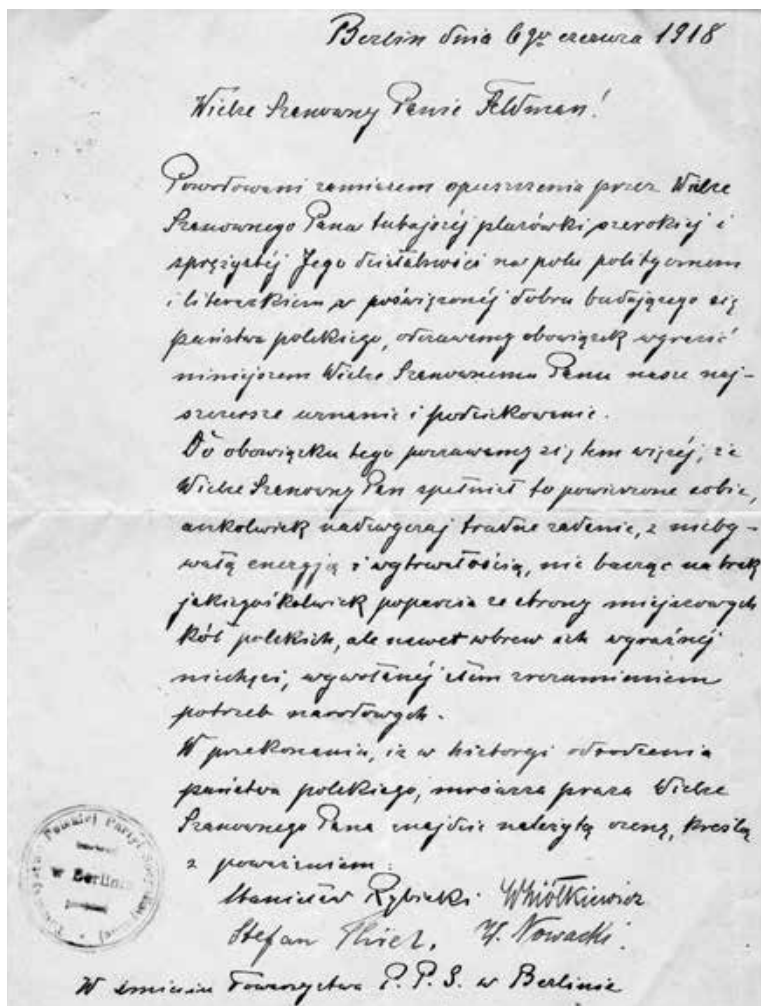 Berlin dnia 6go czerwca 1918
Wielce Szanowny Panie Feldman!
Powodowani zamiarem opuszczenia przez Wielce
Szanownego Pana tutajszéj placówki, szerokiej i
sprężystéj Jego działalności na polu politycznem
i literackiem poświęconéj dobru budującego się
państwa polskiego, odczuwamy obowiązek wyrazić
niniejszem Wielce Szanownemu Panu nasze naj-
szczersze uznanie i podziękowanie.
Do obowiązku tego poczuwamy się tem więcéj, że
Wielce Szanowny Pan spełniał to powierzone sobie,
aczkolwiek nadzwyczaj trudne zadanie, z nieby-
wałą energją i wytrwałością, nie bacząc na brak
jakiegośkolwiek poparcia ze strony miejscowych
kół polskich, ale nawet wbrew ich wyraźnéj
niechęci, wywołanéj złem zrozumieniem
potrzeb narodowych.
W przekonaniu, iż w historyi odrodzenia
państwa polskiego, mrówcza praca Wielce
Szanownego Pana znajdzie należytą ocenę, kreślą
z poważaniem:
Stanisław Rybicki Wiółkiewicz
Stefan W. Nowacki.
W imieniu Towarzystwa P. P. S. w Berlinie
w Berlinie